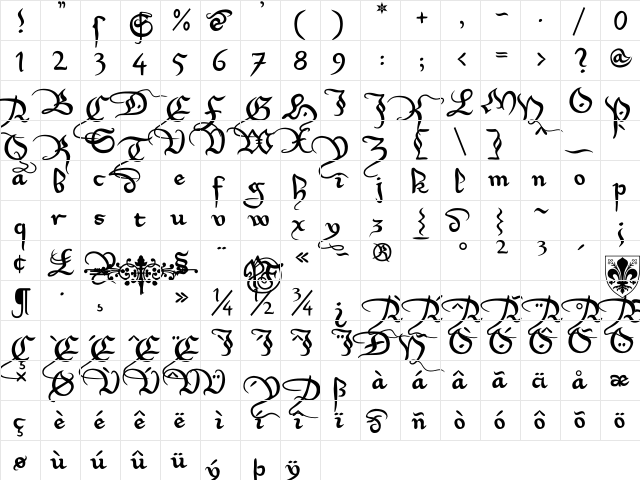 ! " ſ $ % & ' ( ) * + , ~ . / 0
1 2 3 4 5 6 7 8 9 : ; < = > ? @
A B C D E F G H I J K L M N O P
Q R S T U V W X Y Z [ \ ] ^ _
a b c d e f g h i j k l m n o p
q r s t u v w x y z { ∂ } ~ ¡
¢ £ § ¨ « ~ ® ° 2 3 ´
¶ · ¸ » ¼ ½ ¾ ¿ À Á Â Ã Ä Å
Ç È É Ê Ë Ì Í Î Ï Ð Ñ Ò Ó Ô Õ Ö
× Ø Ù Ú Û Ü Ý Þ ß à á â ã ä å æ
ç è é ê ë ì í î ï ð ñ ò ó ô õ ö
ø ù ú û ü ý þ ÿ